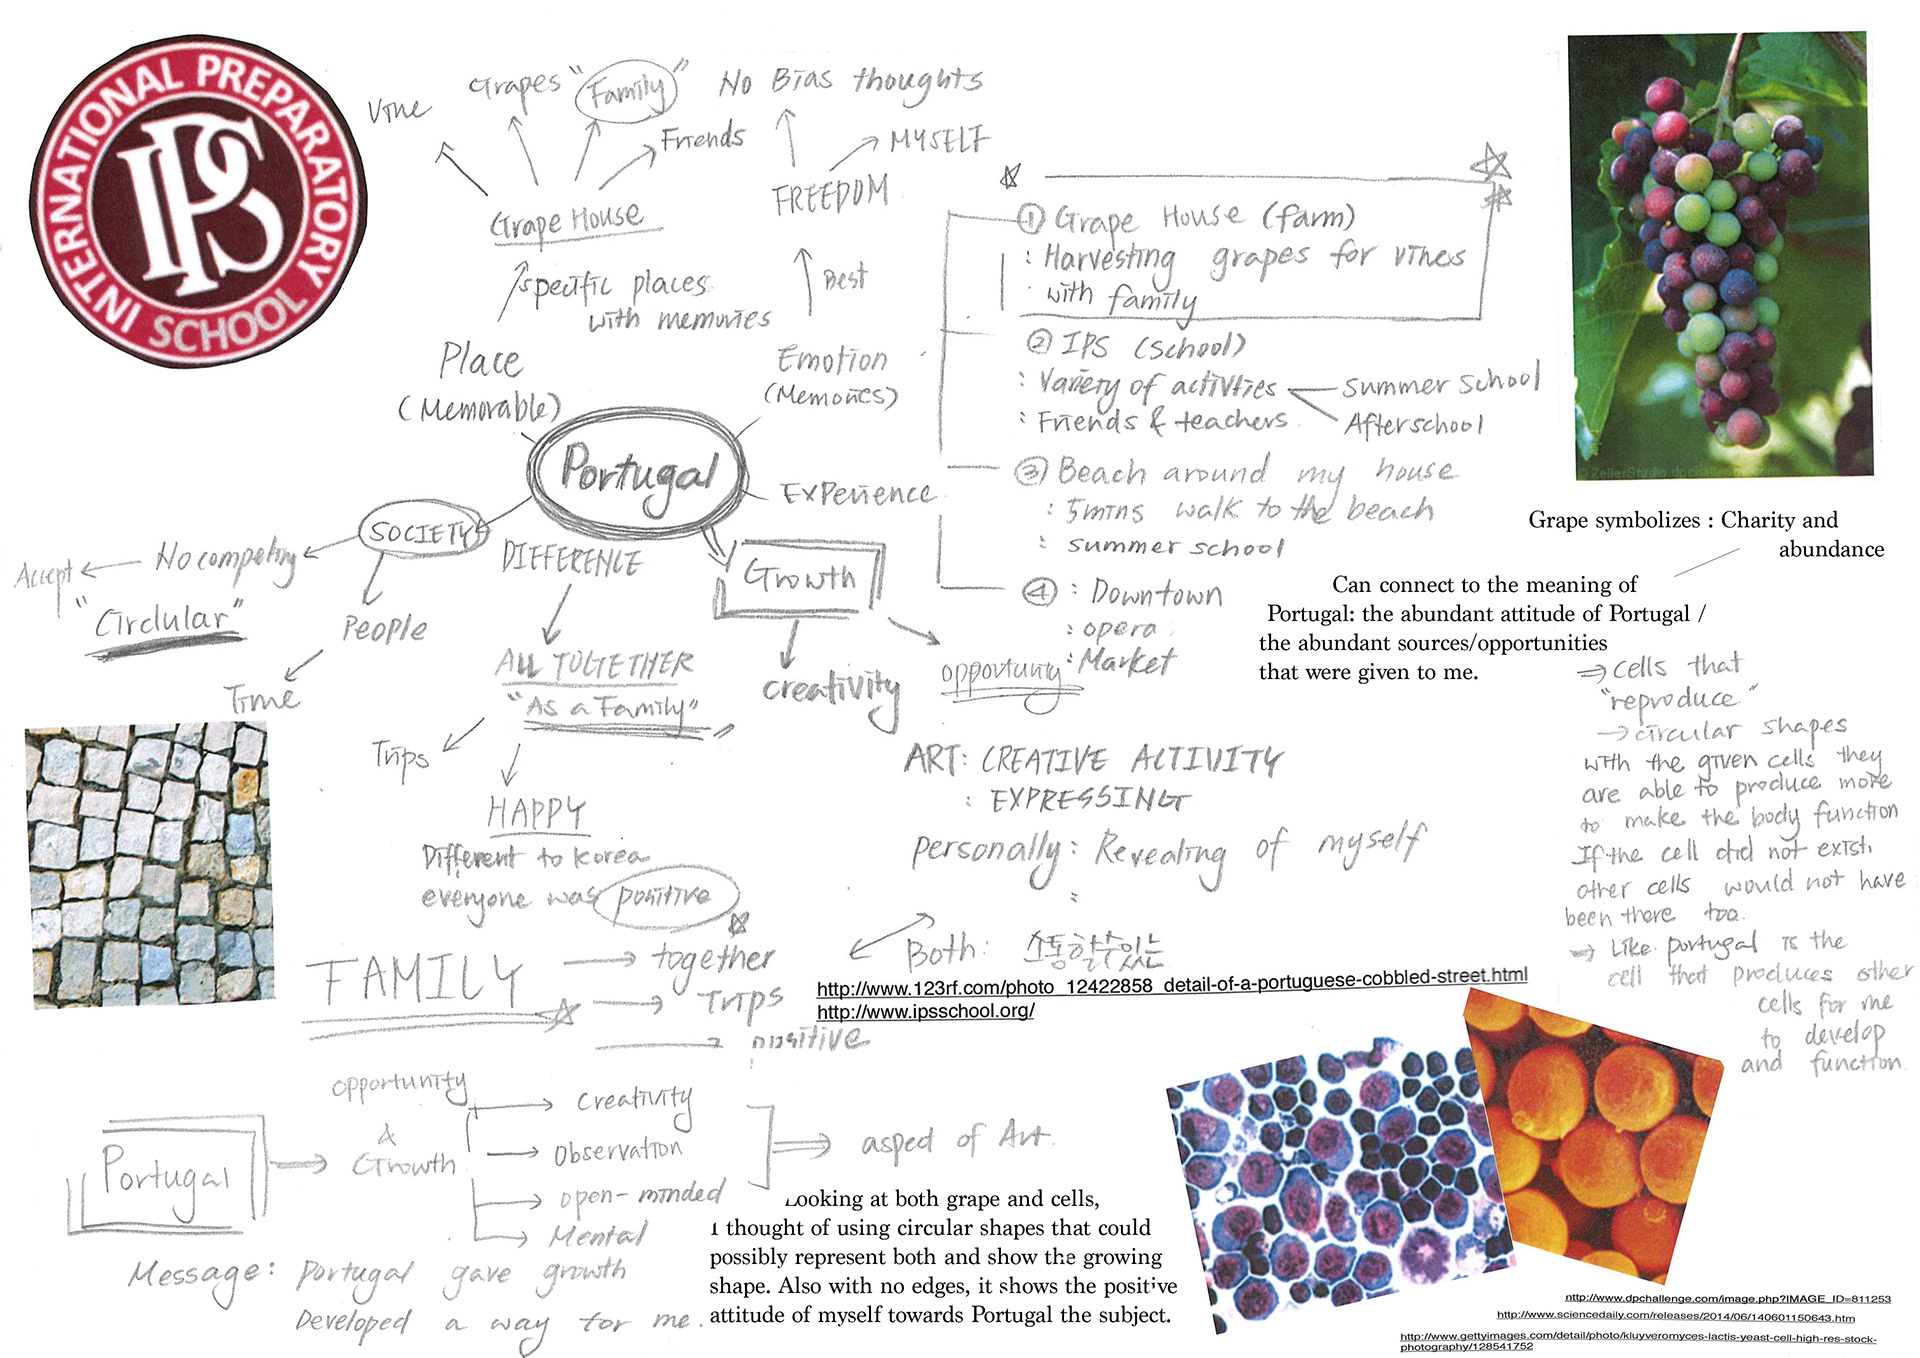 INTERNATIONAL PREPARATORY
SCHOOL
IPS
Vine
Grapes
"Family"
Friends
No Bias thoughts
MYSELF
FREEDOM
Grape House
specific places
with memories
Best
Place
(Memorable)
Emotion
(Memories)
Portugal
Experience
SOCIETY
No competing
Accept
"Circlular"
People
Time
DIFFERENCE
ALL TOGETHER
"As a Family"
Trips
HAPPY
Different to Korea
everyone was positive
Growth
creativity
opportunity
① Grape House (farm)
: Harvesting grapes for vines
with family
② IPS (school)
: Variety of activties
summer school
Afterschool
: Friends & teachers
③ Beach around my house
: 5mins walk to the beach
: summer school
④ : Downtown
: opera
: Market
© ZellerStudio.dpchallenge.com
Grape symbolizes : Charity and
abundance
Can connect to the meaning of
Portugal: the abundant attitude of Portugal /
the abundant sources/opportunities
that were given to me.
⇒ cells that
"reproduce"
→ circular shapes
with the given cells they
are able to produce more
to make the body function
If the cell did not exist,
other cells would not have
been there too.
⇒ Like portugal is the
cell that produces other
cells for me
to develop
and function.
ART: CREATIVE ACTIVITY
: EXPRESSING
personally: Revealing of myself
:
Both: 소통할수있는
http://www.123rf.com/photo_12422858_detail-of-a-portuguese-cobbled-street.html
http://www.ipsschool.org/
FAMILY
together
Trips
positive
Portugal
opportunity
&
Growth
creativity
observation
open-minded
Mental
aspect of Art.
Message: portugal gave growth
Developed a way for me.
Looking at both grape and cells,
I thought of using circular shapes that could
possibly represent both and show the growing
shape. Also with no edges, it shows the positive
attitude of myself towards Portugal the subject.
http://www.dpchallenge.com/image.php?IMAGE_ID=811253
http://www.sciencedaily.com/releases/2014/06/140601150643.htm
http://www.gettyimages.com/detail/photo/kluyveromyces-lactis-yeast-cell-high-res-stock-
photography/128541752